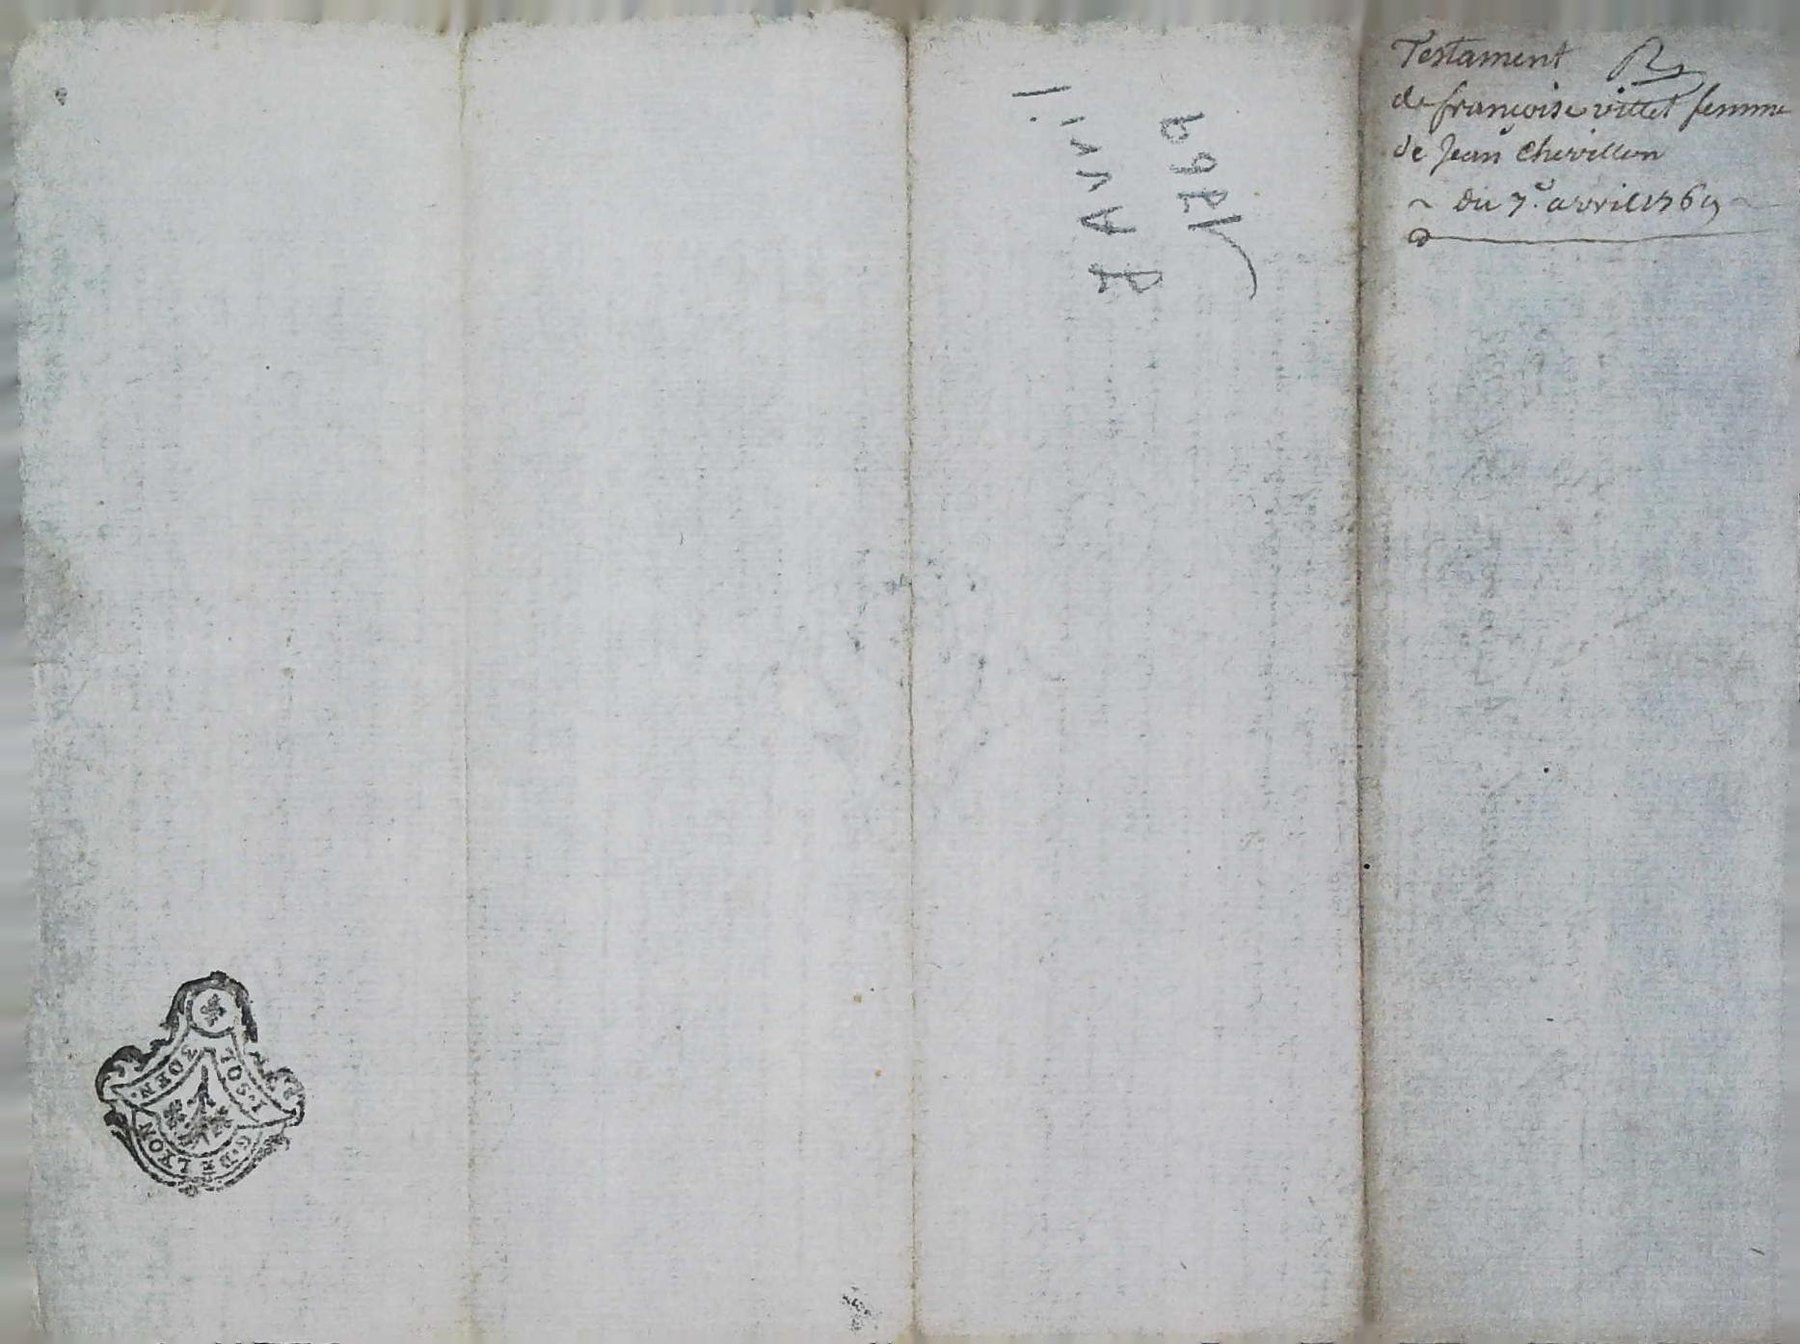 Testament
de françoise vittet femme
de Jean Chevillon
du 7e. avril 1769
7 Avril
1769
G. DE LYON
1. SOL
3 DEN.